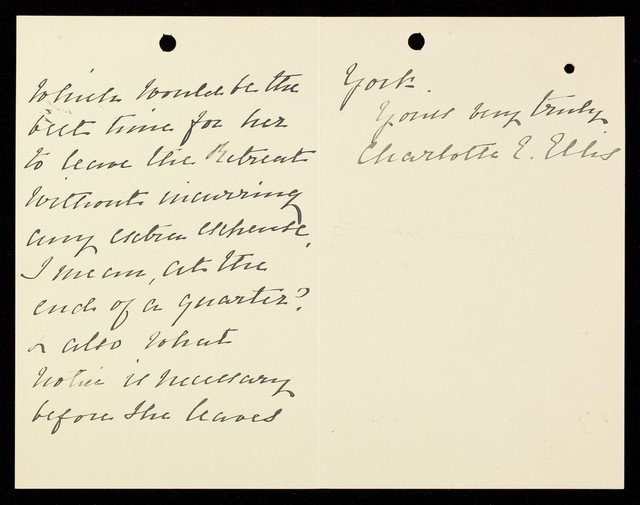 which would be the
best time for her
to leave the Retreat
without incurring
any extra expense,
I mean, at the
end of a quarter?
& also what
notice is necessary
before she leaves
York.
Yours very truly
Charlotte E. Ellis